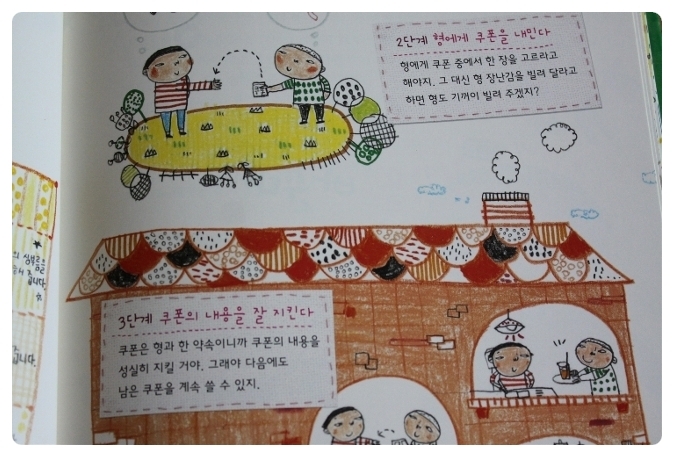 2단계 형에게 쿠폰을 내민다
형에게 쿠폰 중에서 한 장을 고르라고
해야지. 그 대신 형 장난감을 빌려 달라고
하면 형도 기꺼이 빌려 주겠지?
3단계 쿠폰의 내용을 잘 지킨다
쿠폰은 형과 한 약속이니까 쿠폰의 내용을
성실히 지킬 거야. 그래야 다음에도
남은 쿠폰을 계속 쓸 수 있지.
심부름을
줍니다.
니다.